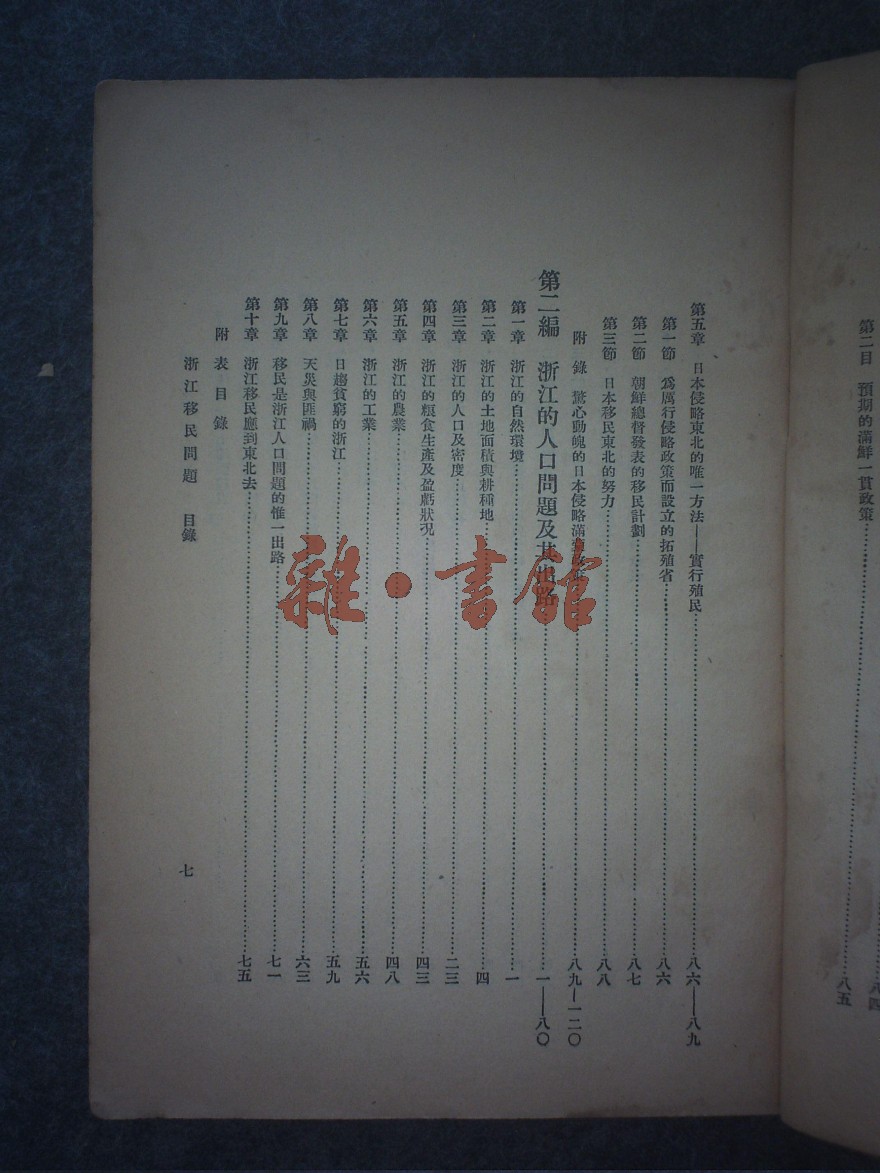 第二目 預期的滿鮮一貫政策……八五
第五章 日本侵略東北的唯一方法——實行殖民……八六—八九
第一節 爲厲行侵略政策而設立的拓殖省……八六
第二節 朝鮮總督發表的移民計劃……八七
第三節 日本移民東北的努力……八八
附錄 驚心動魄的日本侵略滿……八九—一二〇
第二編 浙江的人口問題及其出路……一—八〇
第一章 浙江的自然環境……一
第二章 浙江的土地面積與耕種地……四
第三章 浙江的人口及密度……二三
第四章 浙江的糧食生產及盈虧狀況……四三
第五章 浙江的農業……四八
第六章 浙江的工業……五六
第七章 日趨貧窮的浙江……五九
第八章 天災與匪禍……六三
第九章 移民是浙江人口問題的惟一出路……七一
第十章 浙江移民應到東北去……七五
附表目錄
浙江移民問題 目錄
七
雜·書館